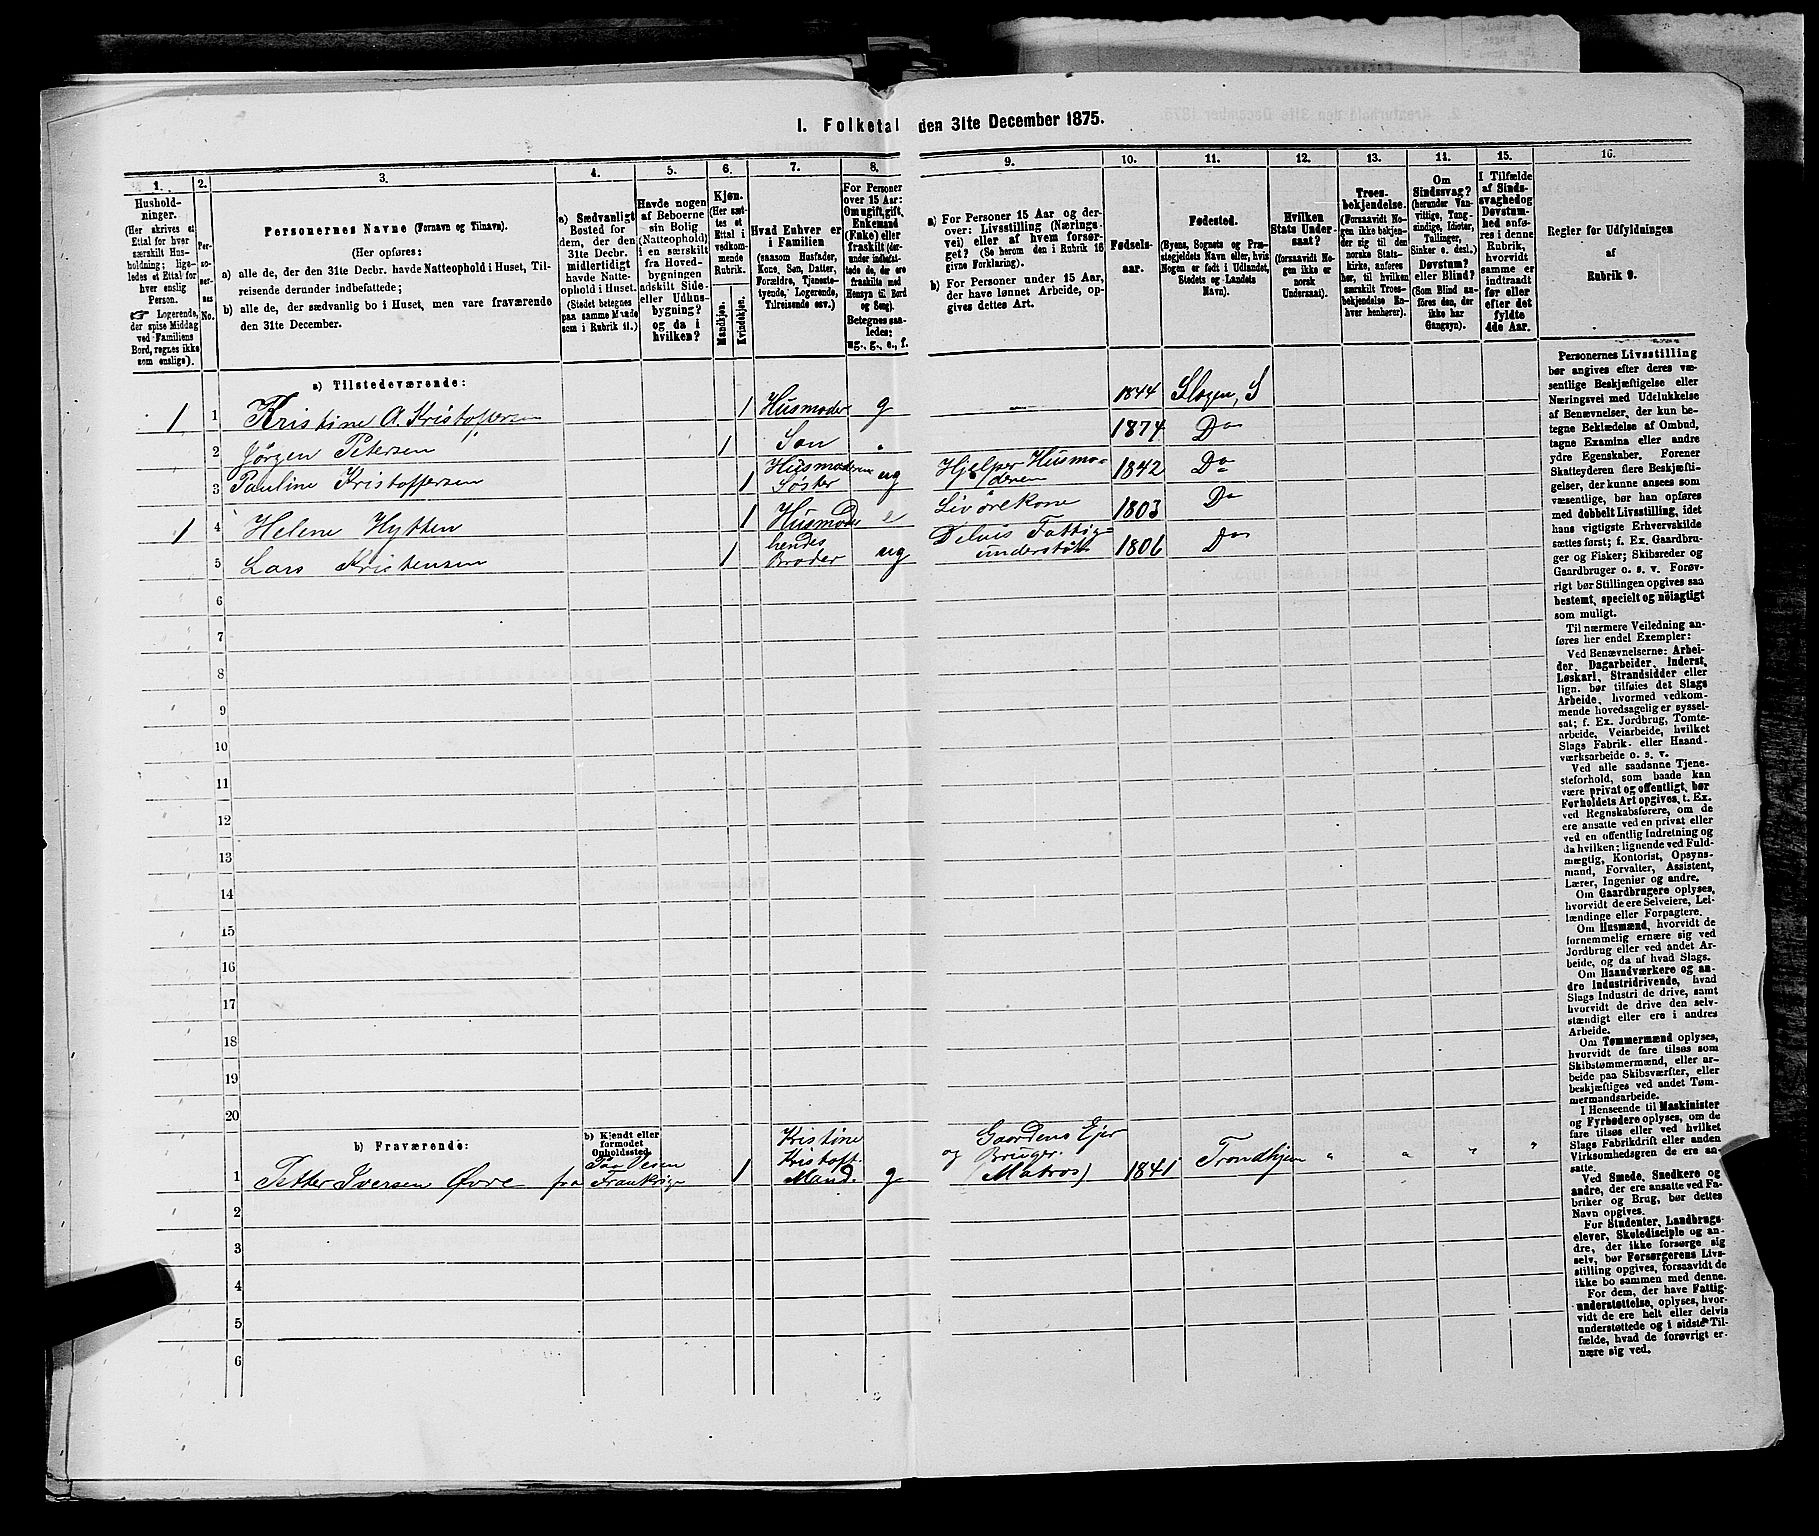 I. Folketal den 31te December 1875.
1. 2. 3. 4. 5. 6. 7. 8. 9. 10. 11. 12. 13. 14. 15. 16.
Hushold-
ninger.
(Her skrives et
Ettal for hver
særskilt Hus-
holdning; lige-
ledes et Ettal for
hver enslig
Person.
☞ Logerende,
der spise Middag
ved Familiens
Bord, regnes ikke
som enslige).
Per-
so-
ner-
nes
No.
Personernes Navne (Fornavn og Tilnavn).
(Her opføres:
a) alle de, der den 31te Decbr. havde Natteophold i Huset, Til-
reisende derunder indbefattede;
b) alle de, der sædvanlig bo i Huset, men vare fraværende
den 31te December.
a) Sædvanligt
Bosted for
dem, der den
31te Decbr.
midlertidigt
havde Natte-
ophold i Huset.
(Stedet betegnes
paa samme Maade
som i Rubrik 11.)
Havde nogen
af Beboerne
sin Bolig
(Natteophold)
i en særskilt
fra Hoved-
bygningen
adskilt Side-
eller Udhus-
bygning?
og da i
hvilken?
Kjøn.
(Her sæt-
tes et
Ettal i
vedkom-
mende
Rubrik.
Mandkjøn.
Kvindekjøn.
Hvad Enhver er
i Familien
(saasom Husfader,
Kone, Søn, Datter,
Forældre, Tjeneste-
tyende, Logerende,
Tilreisende osv.)
For Personer
over 15 Aar:
Om ugift, gift,
Enkemand
(Enke) eller
fraskilt (der-
under indbefat-
tede de, der ere
fraskilte med
Hensyn til Bord
og Seng).
Betegnes saa-
ledes:
ug., g., e., f.
a) For Personer 15 Aar og der-
over: Livsstilling (Nærings-
vei) eller af hvem forsør-
get? (Se herom den i Rubrik 16
givne Forklaring).
b) For Personer under 15 Aar,
der have lønnet Arbeide, op-
gives dettes Art.
Fødsels-
aar.
Fødested.
(Byens, Sognets og Præ-
stegjeldets Navn eller, hvis
Nogen er født i Udlandet,
Stedets og Landets
Navn).
Hvilken
Stats Under-
saat?
(forsaavidt No-
gen ikke er
norsk
Undersaat).
Troes-
bekjendelse.
(Forsaavidt No-
gen ikke bekjen-
der sig til den
norske Stats-
kirke, anføres
her, til hvilken
særskilt Troes-
bekjendelse En-
hver henhører).
Om
Sindssvag?
(herunder Van-
vittige, Tung-
sindige, Idioter,
Tullinger,
Sinker o. desl.)
Døvstum?
eller Blind?
(Som Blind an-
føres den, der
ikke har
Gangsyn).
I Tilfælde
af Sinds-
svaghed og
Døvstum-
hed anfø-
res i denne
Rubrik,
hvorvidt
samme er
indtraadt
før eller
efter det
fyldte
4de Aar.
Regler for Udfyldningen
af
Rubrik 9.
a) Tilstedeværende:
1 1 Kristine A. Kristoffersen 1 Husmoder g — 1844 Slagen, S
2 Jörgen Petersen 1 Søn „ 1874 Do
3 Pauline Kristoffersen 1 Husmoderens Søster ug Hjelper Husmoderen 1842 Do
1 4 Helene Hytten 1 Husmoder e Livörekone 1803 Do
5 Lars Kristensen 1 hendes Broder ug Delvis Fattigunderstöt 1806 Do
6
7
8
9
10
11
12
13
14
15
16
17
18
19
20
b) Fraværende:
b) Kjendt eller
formodet
Opholdssted.
1 Petter Iversen Øvre fra Frankrige 1 Kristine Kristoff. Mand. g Gaardens Ejer og Bruger. (Matros) 1841 Trondhjem „ „ „ „
2
3
4
5
6
Personernes Livsstilling
bør angives efter deres væ-
sentlige Beskjæftigelse eller
Næringsvei med Udelukkelse
af Benævnelser, der kun be-
tegne Beklædelse af Ombud,
tagne Examina eller andre
ydre Egenskaber. Forener
Skatteyderen flere Beskjæfti-
gelser, der kunne ansees som
væsentlige, bør han opføres
med dobbelt Livsstilling, idet
hans vigtigste Erhvervskilde
sættes først; f. Ex. Gaardbru-
ger og Fisker; Skibsreder og
Gaardbruger o. s. v. Forøv-
rigt bør Stillingen opgives saa
bestemt, specielt og nöiagtigt
som muligt.
Til nærmere Veiledning an-
føres her endel Exempler:
Ved Benævnelserne: Arbei-
der, Dagarbeider, Inderst,
Løskarl, Strandsidder eller
lign. bør tilføies det Slags
Arbeide, hvormed vedkom-
mende hovedsagelig er syssel-
sat; f. Ex. Jordbrug, Tomte-
arbeide, Veiarbeide, hvilket
Slags Fabrik- eller Haand-
værksarbeide o. s. v.
Ved alle saadanne Tjene-
steforhold, som baade kan
være privat og offentligt, bør
Forholdets Art opgives, t. Ex.
ved Regnskabsførere, om de
ere ansatte ved en privat eller
ved en offentlig Indretning og
da hvilken; lignende ved Fuld-
mægtig, Kontorist, Opsyns-
mand, Forvalter, Assistent,
Lærer, Ingeniør og andre.
Om Gaardbrugere oplyses,
hvorvidt de ere Selveiere, Lei-
lændinge eller Forpagtere.
Om Husmænd, hvorvidt de
fornemmelig ernære sig ved
Jordbrug eller ved andet Ar-
beide, og da af hvad Slags.
Om Haandværkere og an-
dre Industridrivende, hvad
Slags Industri de drive, samt
hvorvidt de drive den selv-
stændigt eller ere i andres
Arbeide.
Om Tømmermænd oplyses,
hvorvidt de fare tilsøs som
Skibstømmermænd, eller ar-
beide paa Skibsværfter, eller
beskjæftiges ved andet Tøm-
mermandsarbeide.
I Henseende til Maskinister
og Fyrbødere oplyses, om de
fare tilsøs eller ved hvilket
Slags Fabrikdrift eller anden
Virksomhedsgren de ere an-
satte.
Ved Smede, Snedkere og
andre, der ere ansatte ved Fa-
briker og Brug, bør dettes
Navn opgives.
For Studenter, Landbrugs-
elever, Skoledisciple og an-
dre, der ikke forsørge sig
selv, bør Forsørgerens Livs-
stilling opgives, forsaavidt de
ikke bo sammen med denne.
For dem, der have Fattig-
understøttelse, oplyses, hvor-
vidt de ere helt eller delvis
understøttede og i sidste Til-
fælde, hvad de forøvrigt er-
nære sig ved.